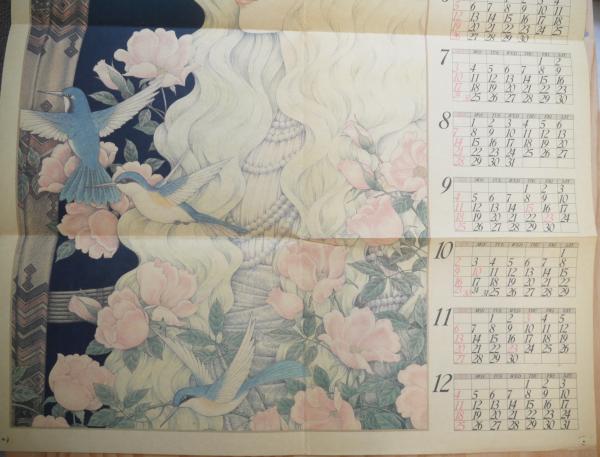 5 6 7 8 9 10 11
12 13 14 15 16 17 18
19 20 21 22 23 24 25
26 27 28 29 30
7
MON TUE WED THU FRI SAT
1 2
3 4 5 6 7 8 9
10 11 12 13 14 15 16
17 18 19 20 21 22 23
24 31 25 26 27 28 29 30
8
MON TUE WED THU FRI SAT
1 2 3 4 5 6
7 8 9 10 11 12 13
14 15 16 17 18 19 20
21 22 23 24 25 26 27
28 29 30 31
9
MON TUE WED THU FRI SAT
1 2 3
4 5 6 7 8 9 10
11 12 13 14 15 16 17
18 19 20 21 22 23 24
25 26 27 28 29 30
10
MON TUE WED THU FRI SAT
1
2 3 4 5 6 7 8
9 10 11 12 13 14 15
16 17 18 19 20 21 22
23 30 24 31 25 26 27 28 29
11
MON TUE WED THU FRI SAT
1 2 3 4 5
6 7 8 9 10 11 12
13 14 15 16 17 18 19
20 21 22 23 24 25 26
27 28 29 30
12
MON TUE WED THU FRI SAT
1 2 3
4 5 6 7 8 9 10
11 12 13 14 15 16 17
18 19 20 21 22 23 24
25 26 27 28 29 30 31